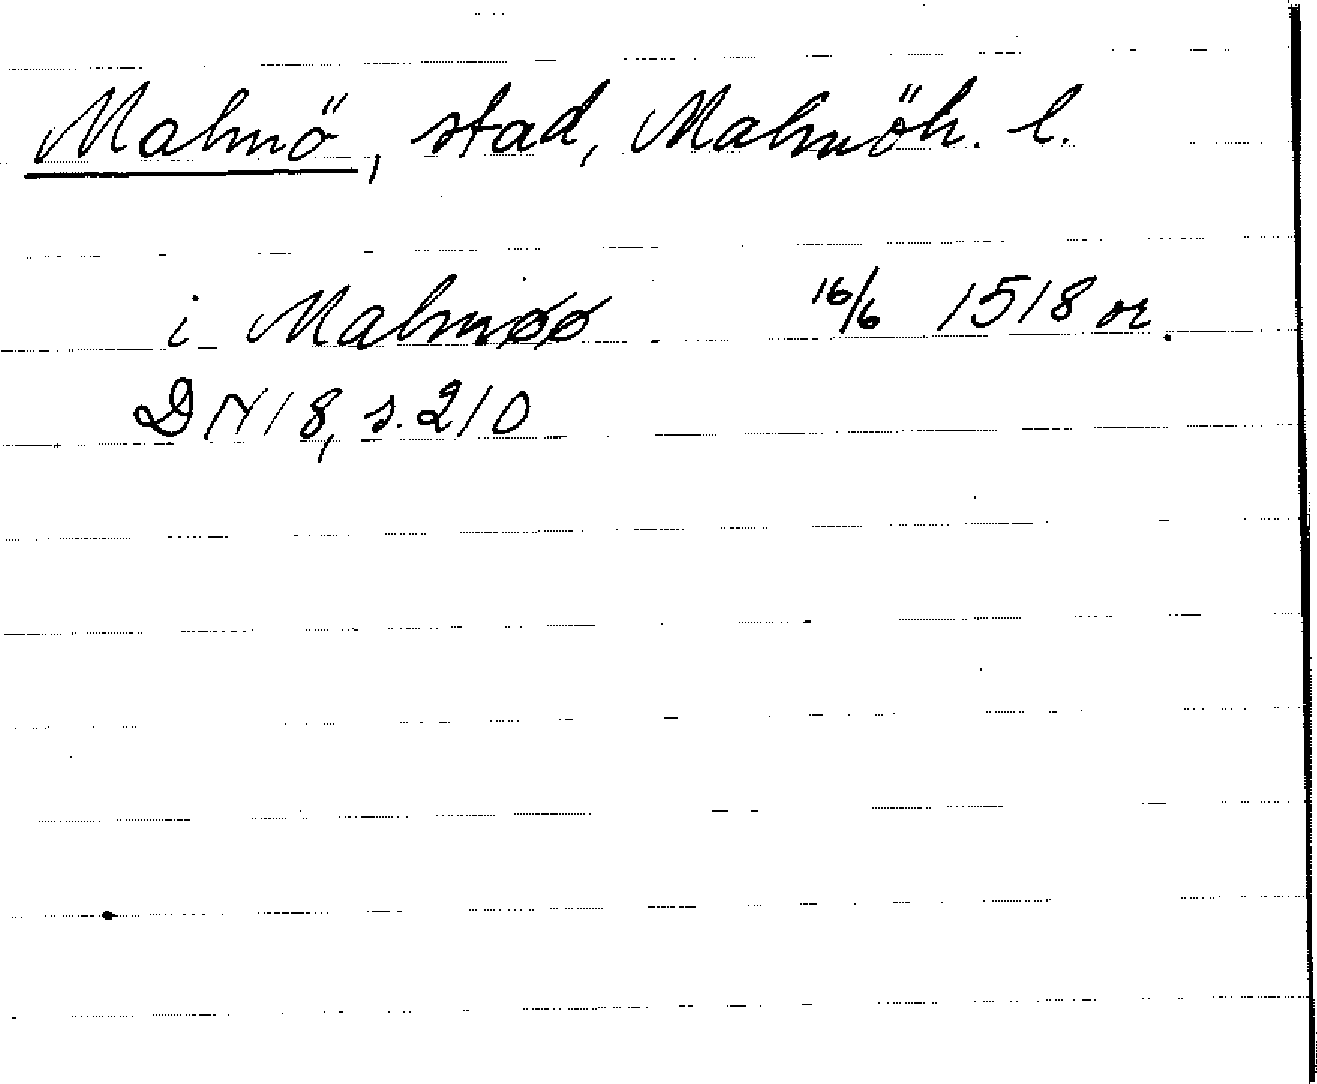 Malmö, stad, Malmöh. l.
i Malmøø 16/6 1518 or.
DN 18, s. 210